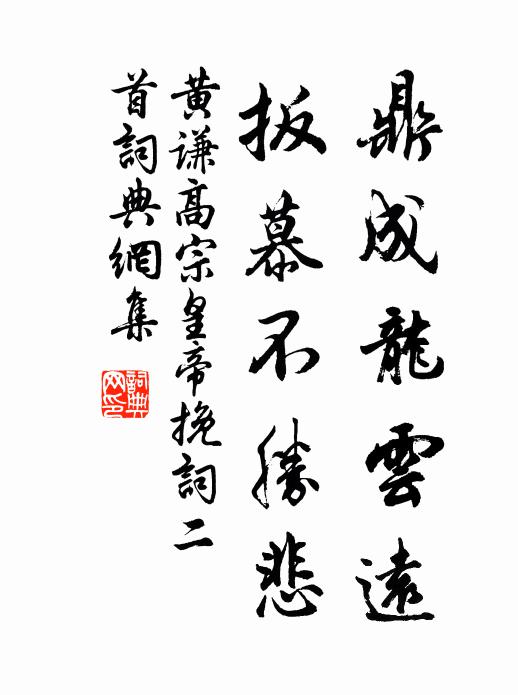 鼎成龍雲遠
扳慕不勝悲
黄谦高宗皇帝挽詞二
首詞典網集
詞典網印